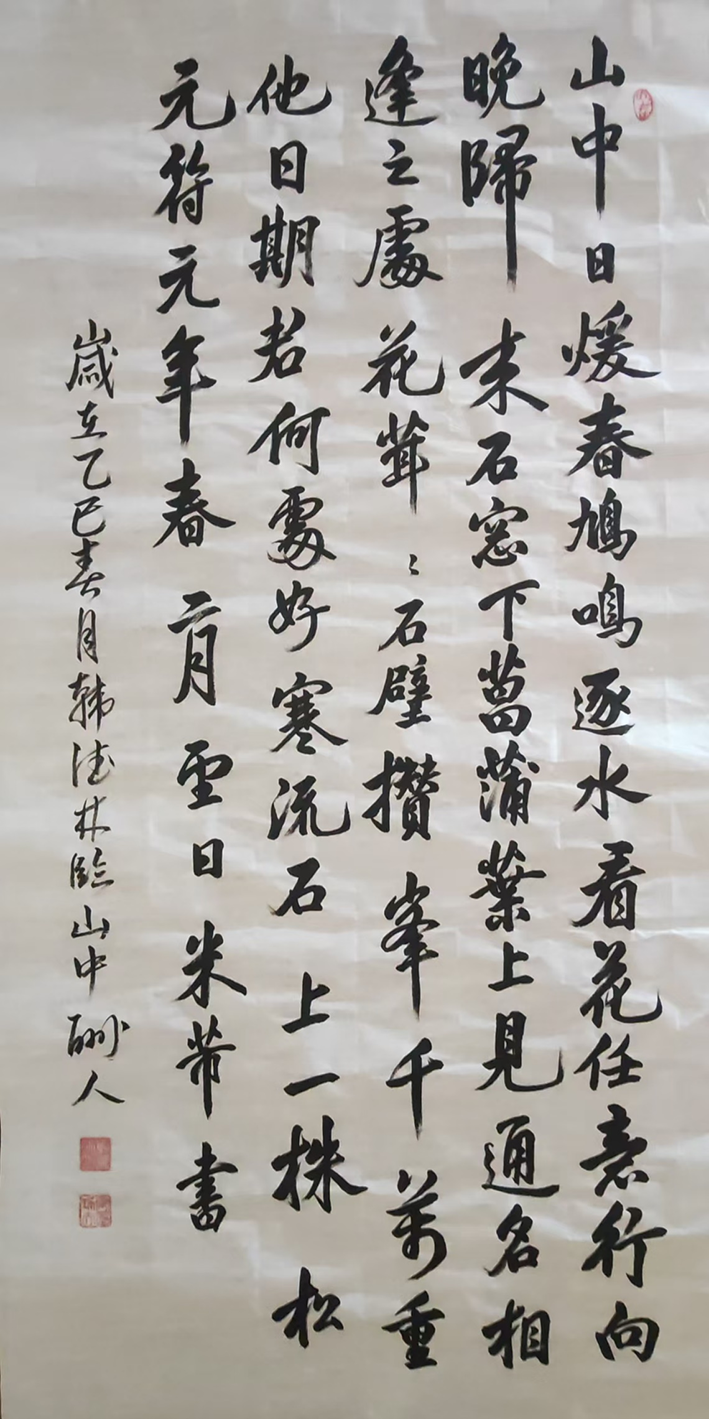 山中日煖春鳩鳴逐水看花任意行向
晚歸来石窓下菖蒲葉上見通名相
逢之處花茸〻石壁攢峯千萬重
他日期君何處好寒流石上一株松
元符元年春二月望日米芾書
歲在乙巳春月韩德林臨山中酬人